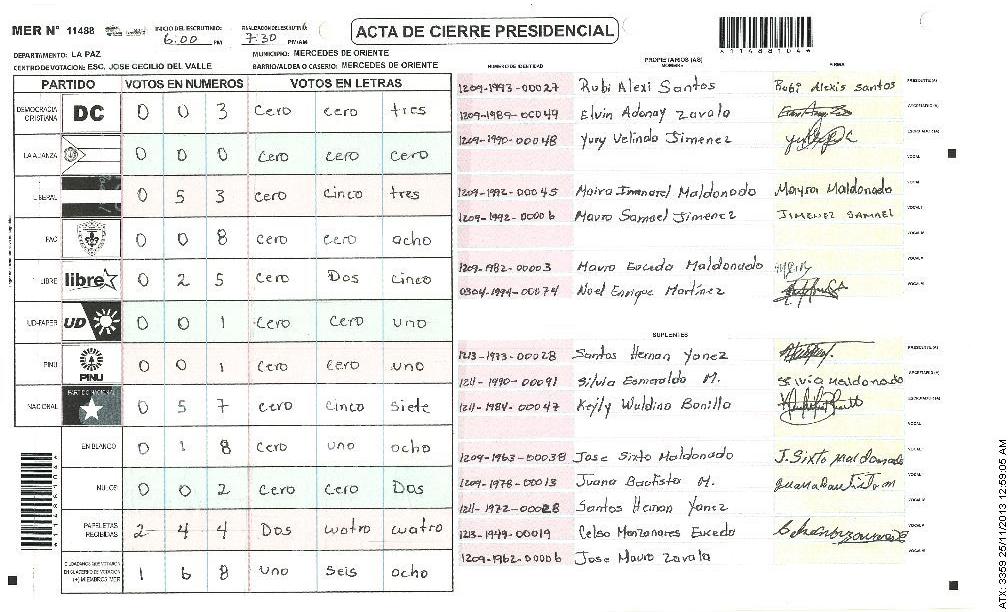 MER N° 11488 INICIO DEL ESCRUTINIO: 6:00 PM FINALIZACION DEL ESCRUTINIO 7:30 PM/AM
ACTA DE CIERRE PRESIDENCIAL
DEPARTAMENTO: LA PAZ MUNICIPIO: MERCEDES DE ORIENTE
CENTRO DE VOTACION: ESC. JOSE CECILIO DEL VALLE BARRIO/ALDEA O CASERIO: MERCEDES DE ORIENTE
PARTIDO VOTOS EN NUMEROS VOTOS EN LETRAS
DEMOCRACIA CRISTIANA DC 0 0 3 cero cero tres
LA ALIANZA 0 0 0 cero cero cero
LIBERAL 0 5 3 cero cinco tres
PAC 0 0 8 cero cero ocho
LIBRE libre 0 2 5 cero Dos cinco
UD-FAPER UD 0 0 1 cero cero uno
PINU PINU 0 0 1 cero cero uno
NACIONAL PARTIDO NACIONAL 0 5 7 cero cinco siete
EN BLANCO 0 1 8 cero uno ocho
NULOS 0 0 2 cero cero Dos
PAPELETAS RECIBIDAS 2 4 4 Dos cuatro cuatro
CIUDADANOS QUE VOTARON
(+) MIEMBROS MER 1 6 8 uno seis ocho
NUMERO DE IDENTIDAD PROPIETARIOS (AS) NOMBRE FIRMA
1209-1993-00027 Rubi Alexi Santos Rubi Alexis Santos PRESIDENTE (A)
1209-1989-00049 Elvin Adonay Zavala SECRETARIO (A)
1209-1990-00048 Yury Velindo Jimenez ESCRUTADOR (A)
VOCAL
1209-1992-00045 Maira Maldonado Mayra Maldonado VOCAL
1209-1992-00006 Mauro Samael Jimenez JIMENEZ SAMAEL VOCAL
VOCAL
1209-1982-00003 Mauro Euceda Maldonado VOCAL
0304-1994-00074 Noel Enrique Martínez VOCAL
SUPLENTES
1213-1973-00028 Santos Hernan Yanez PRESIDENTE (A)
1211-1990-00091 Silvia Esmeralda M. Silvia Maldonado SECRETARIO (A)
1211-1984-00047 Kejly Waldina Bonilla ESCRUTADOR (A)
VOCAL
1209-1963-00038 Jose Sixto Maldonado J. Sixto Maldonado VOCAL
1209-1978-00013 Juana Bautista M. VOCAL
1211-1972-00028 Santos Hernan Yanez VOCAL
1213-1949-00019 Celso Manzanares Euceda VOCAL
1209-1962-00006 Jose Mauro Zavala VOCAL
ATX: 3359 25/11/2013 12:59:05 AM